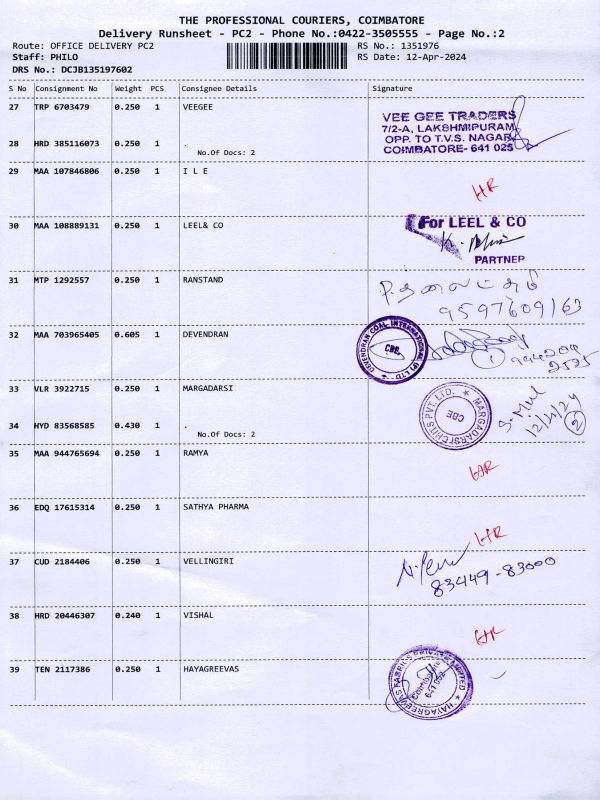 THE PROFESSIONAL COURIERS, COIMBATORE
Delivery Runsheet - PC2 - Phone No.:0422-3505555 - Page No.:2
Route: OFFICE DELIVERY PC2 RS No.: 1351976
Staff: PHILO RS Date: 12-Apr-2024
DRS No.: DCJB135197602
S No Consignment No Weight PCS Consignee Details Signature
27 TRP 6703479 0.250 1 VEEGEE
VEE GEE TRADERS
7/2-A, LAKSHMIPURAM,
OPP. TO T.V.S. NAGAR
COIMBATORE- 641 025
28 HRD 385116073 0.250 1 .
No.Of Docs: 2
29 MAA 107846806 0.250 1 I L E
HR
30 MAA 108889131 0.250 1 LEEL& CO
For LEEL & CO
PARTNER
31 MTP 1292557 0.250 1 RANSTAND
9597609163
32 MAA 703965405 0.605 1 DEVENDRAN
DEVENDRAN COAL INTERNATIONAL (P) LTD.
CBE
33 VLR 3922715 0.250 1 MARGADARSI
MARGADARSI CHITS PVT. LTD.
CBE
12/4/24
2
34 HYD 83568585 0.430 1 .
No.Of Docs: 2
35 MAA 944765694 0.250 1 RAMYA
HR
36 EDQ 17615314 0.250 1 SATHYA PHARMA
HR
37 CUD 2184406 0.250 1 VELLINGIRI
83449-83000
38 HRD 20446307 0.240 1 VISHAL
HR
39 TEN 2117386 0.250 1 HAYAGREEVAS